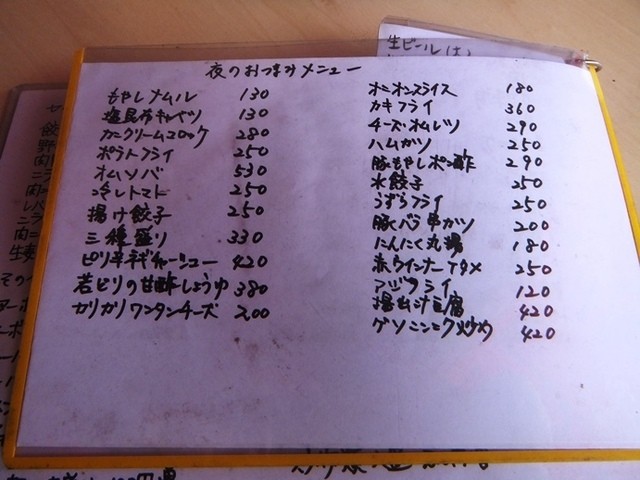 生ビール(大)
夜のおつまみメニュー
もやしナムル 130
塩昆布キャベツ 130
カニクリームコロッケ 280
ポテトフライ 250
オムソバ 530
冷しトマト 250
揚げ餃子 250
三種盛り 330
ピリ辛ネギチャーシュー 420
若どりの甘酢しょうゆ 380
カリカリワンタンチーズ 200
オニオンスライス 180
カキフライ 360
チーズ・オムレツ 290
ハムカツ 250
豚もやしポン酢 290
水餃子 250
うずらフライ 250
豚バラ串カツ 200
にんにく丸揚 180
赤ウインナー 250
アジフライ 120
揚出汁豆腐 420
ゲソニンニク炒め 420